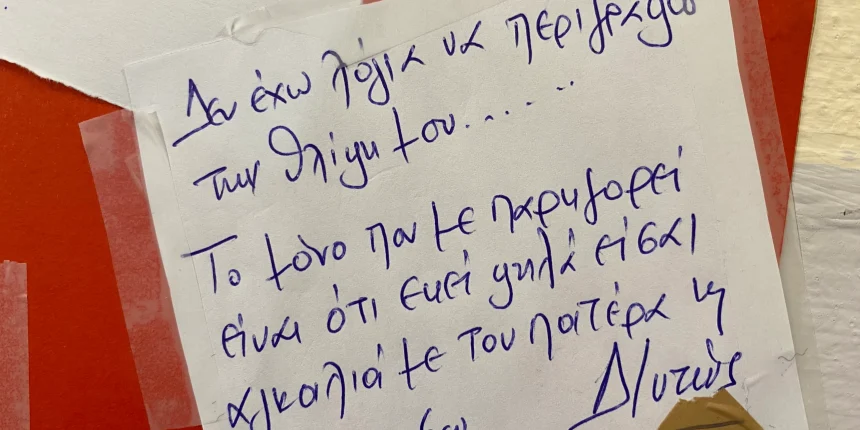 Δεν έχω λόγια να περιγράψω
την θλίψη μου......
Το μόνο που με παρηγορεί
είναι ότι εκεί ψηλά είσαι
αγκαλιά με του πατέρα